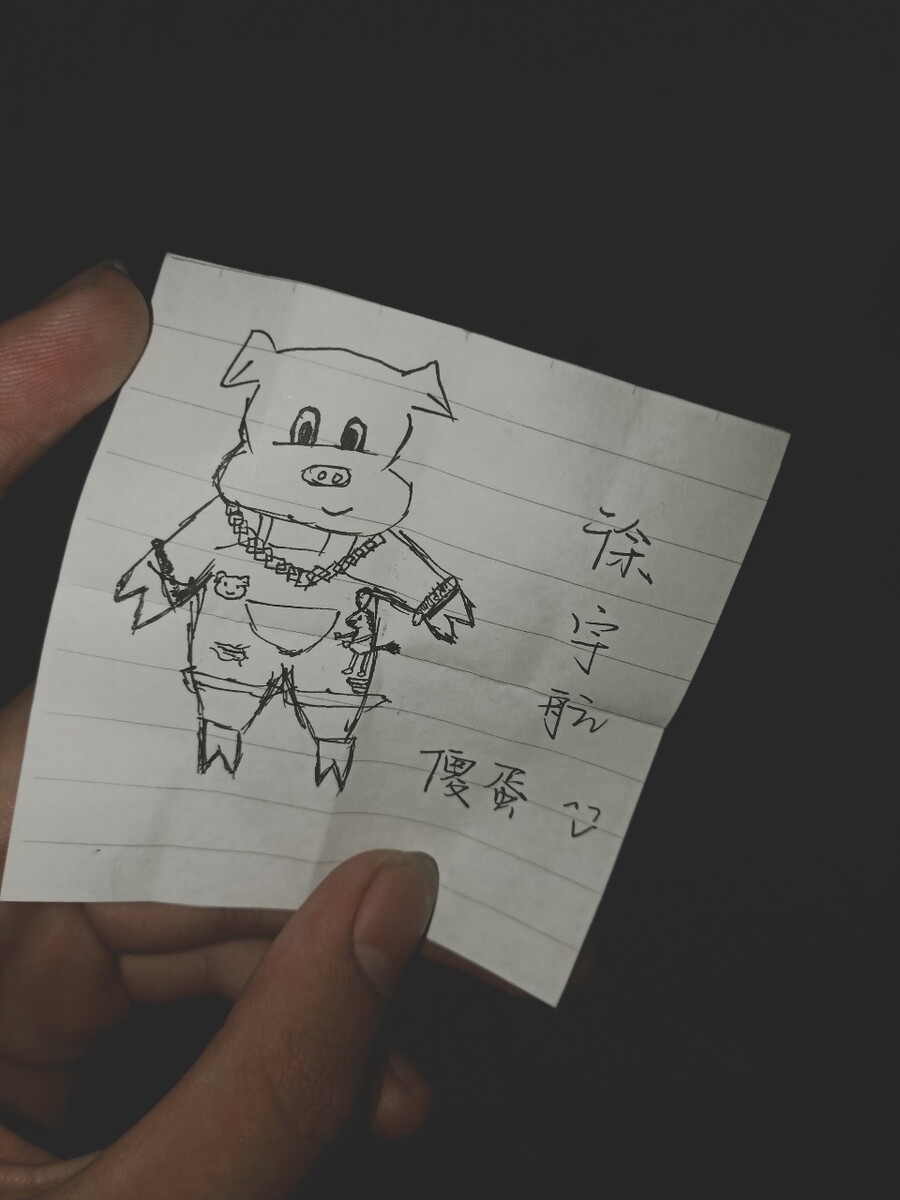 徐宇航
傻蛋